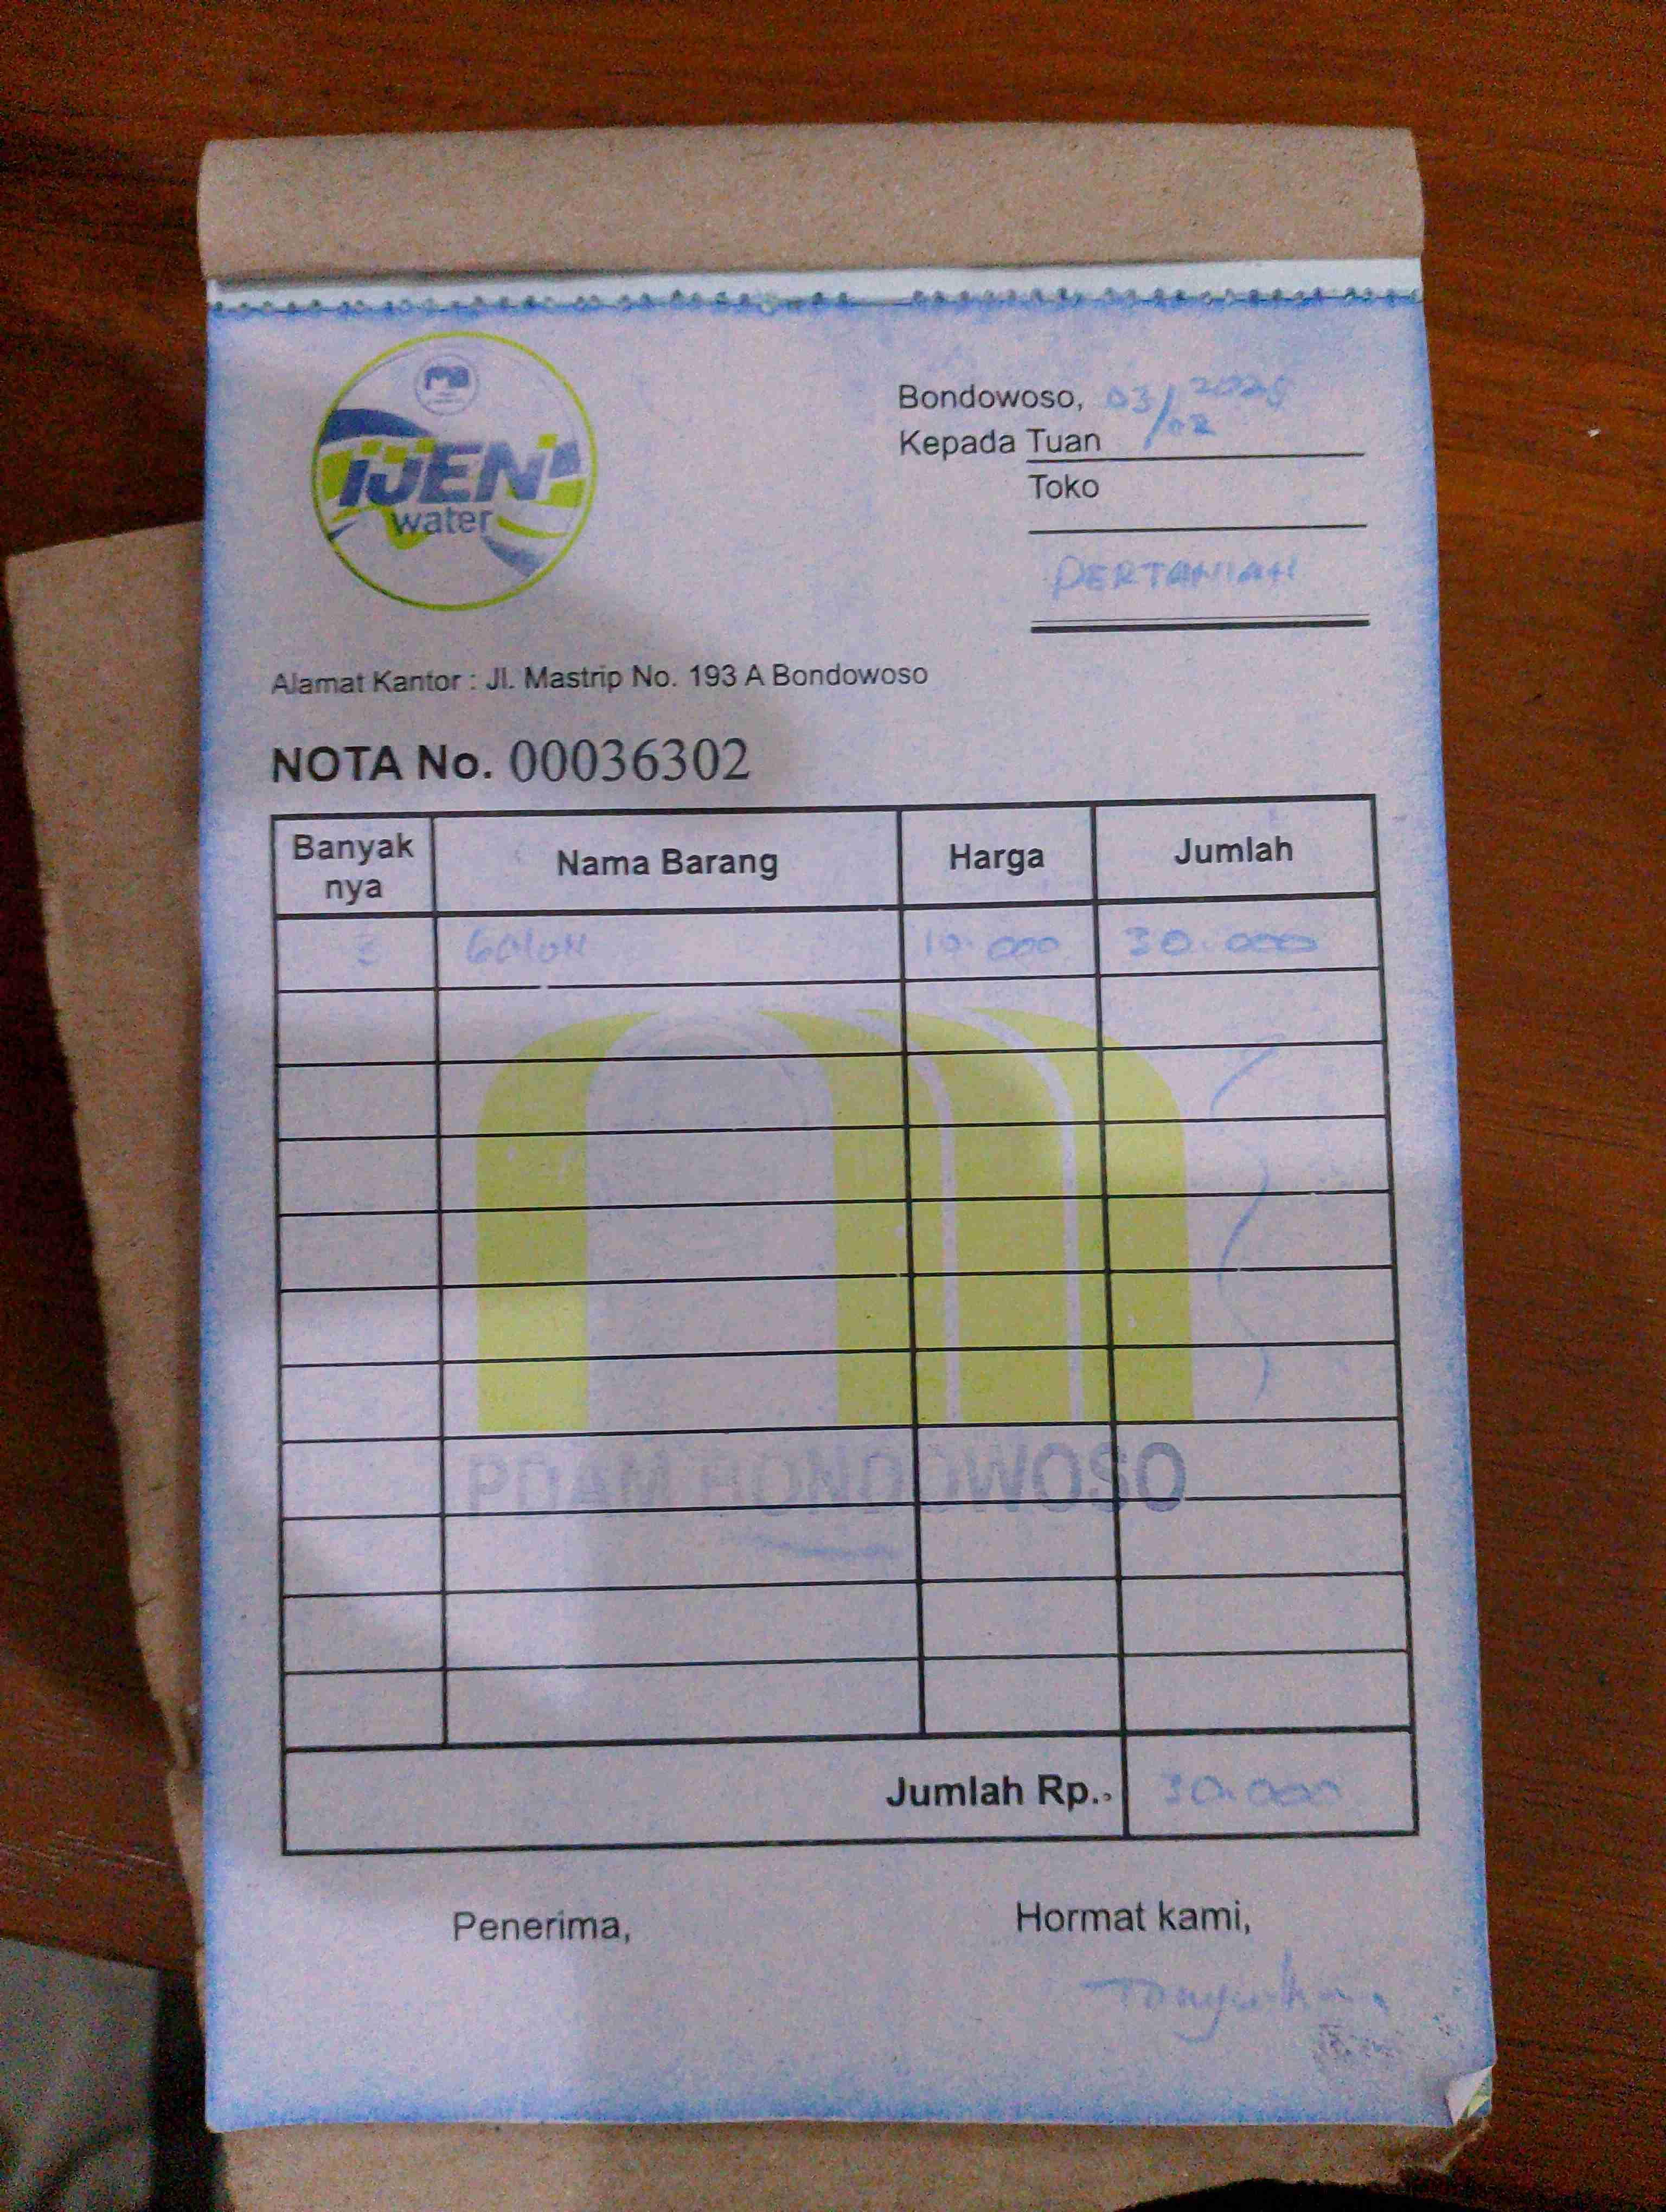 IJEN
water
Bondowoso, 03/02 2025
Kepada Tuan
Toko
PERTANIAN
Alamat Kantor : Jl. Mastrip No. 193 A Bondowoso
NOTA No. 00036302
Banyak nya Nama Barang Harga Jumlah
3 Galon 10.000 30.000
PDAM BONDOWOSO
Jumlah Rp. 30.000
Penerima, Hormat kami,